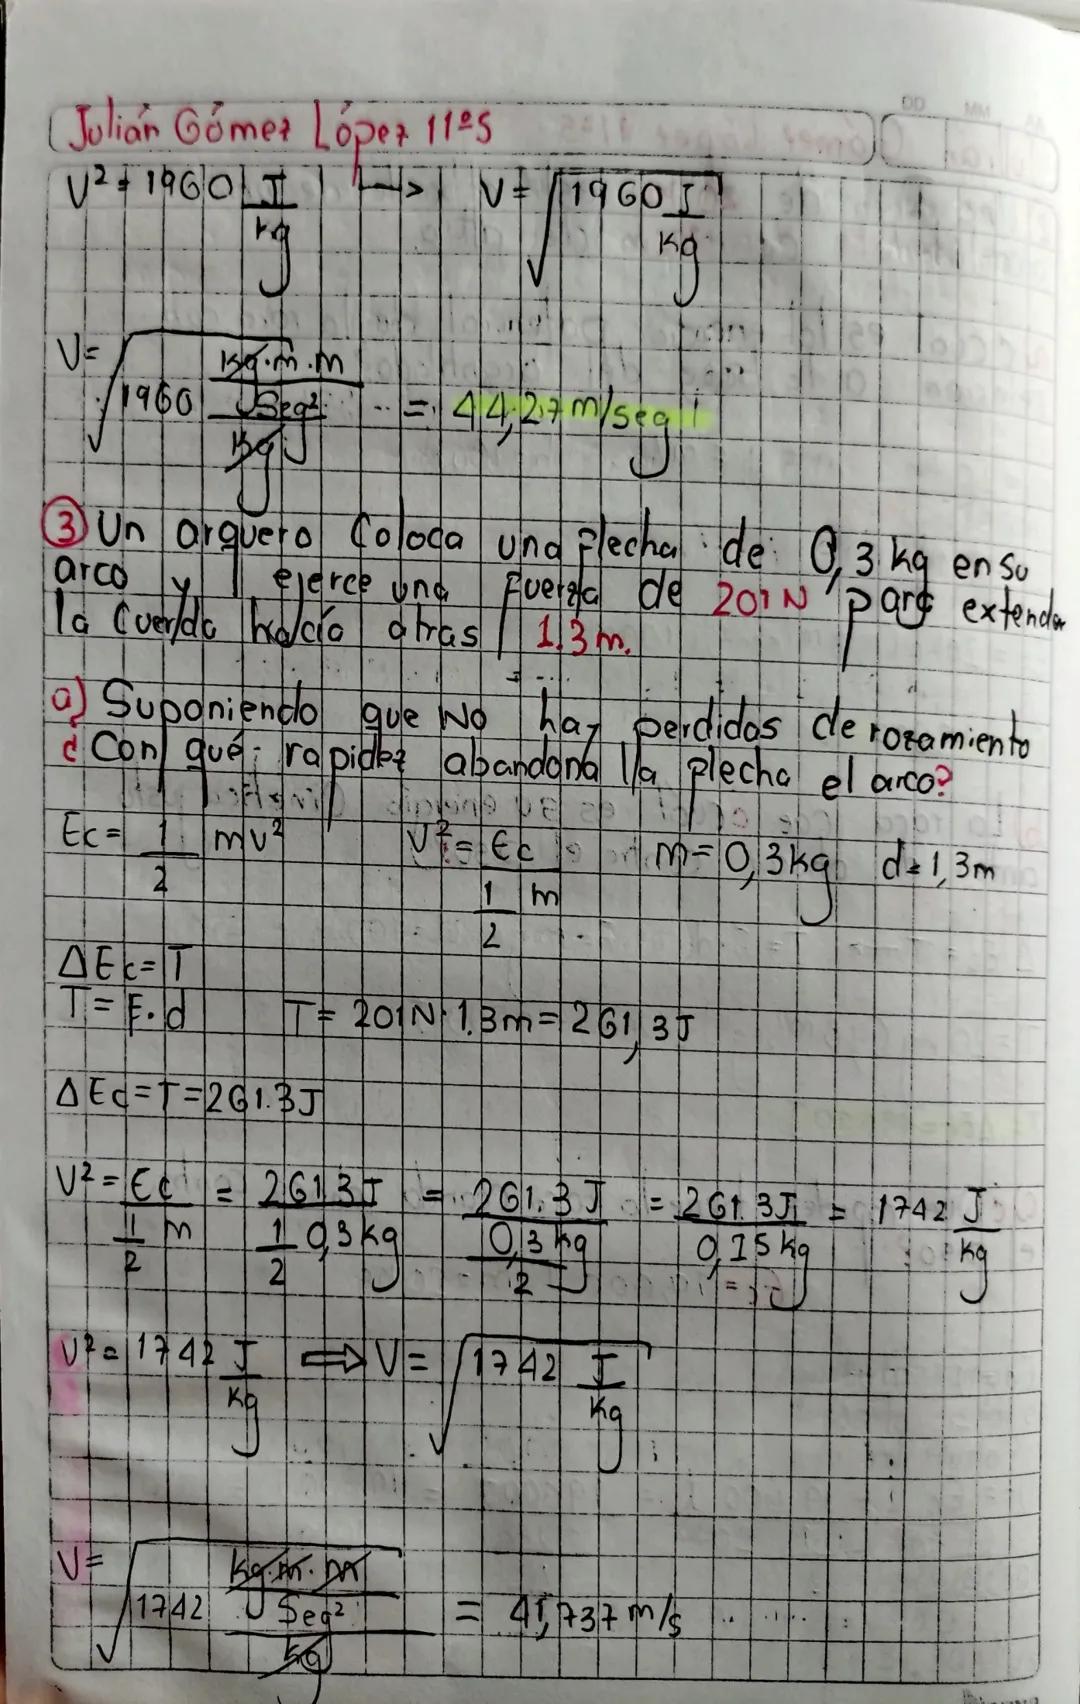 Julián Gómez López 11°S
V² = 1960 J/kg → V = √1960 J/kg
V = √1960 kg.m.m/Seg²/kg = 44,27 m/seg
③ Un arquero Coloca una flecha de 0,3 kg en su
arco y ejerce una fuerza de 201N para extender
la Cuerda hacía atras 1.3m.
a) Suponiendo que No hay perdidas de rozamiento
¿Con qué rapidez abandona la flecha el arco?
Ec = 1/2 mv² V² = Ec / 1/2 m m = 0,3kg d = 1,3m
ΔEc = T
T = F.d T = 201N.1.3m = 261,3J
ΔEc = T = 261.3J
V² = Ec / 1/2 m = 261.3J / 1/2 0,3kg = 261.3J / 0,3kg/2 = 261.3J / 0,15kg = 1742 J/kg
V² = 1742 J/kg ⇒ V = √1742 J/kg
V = √1742 kg.m.m/Seg²/kg = 41,737 m/s